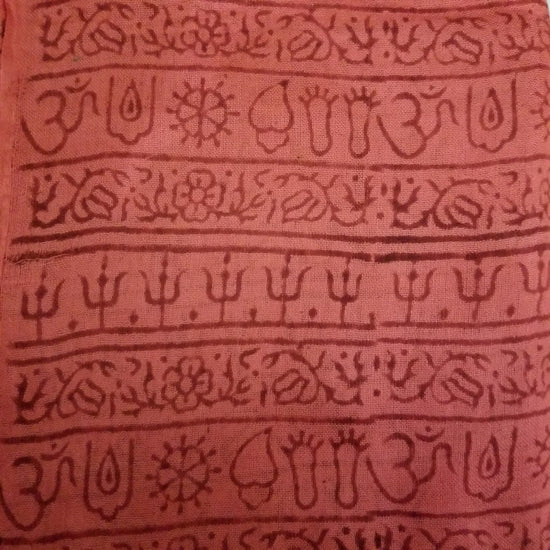 ॐ ॐ
ॐ ॐ